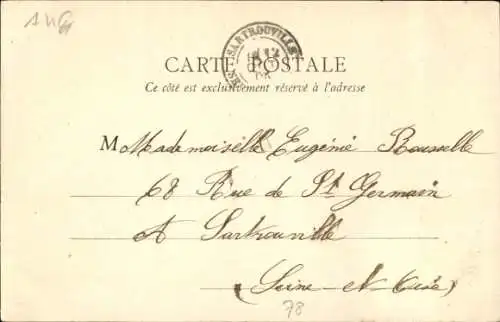 SARTROUVILLE
CARTE POSTALE
Ce côté est exclusivement réservé à l'adresse
M Mademoiselle Eugénie Rousselle
68 Rue de St Germain
A Sartrouville
(Seine-et-Oise)
78